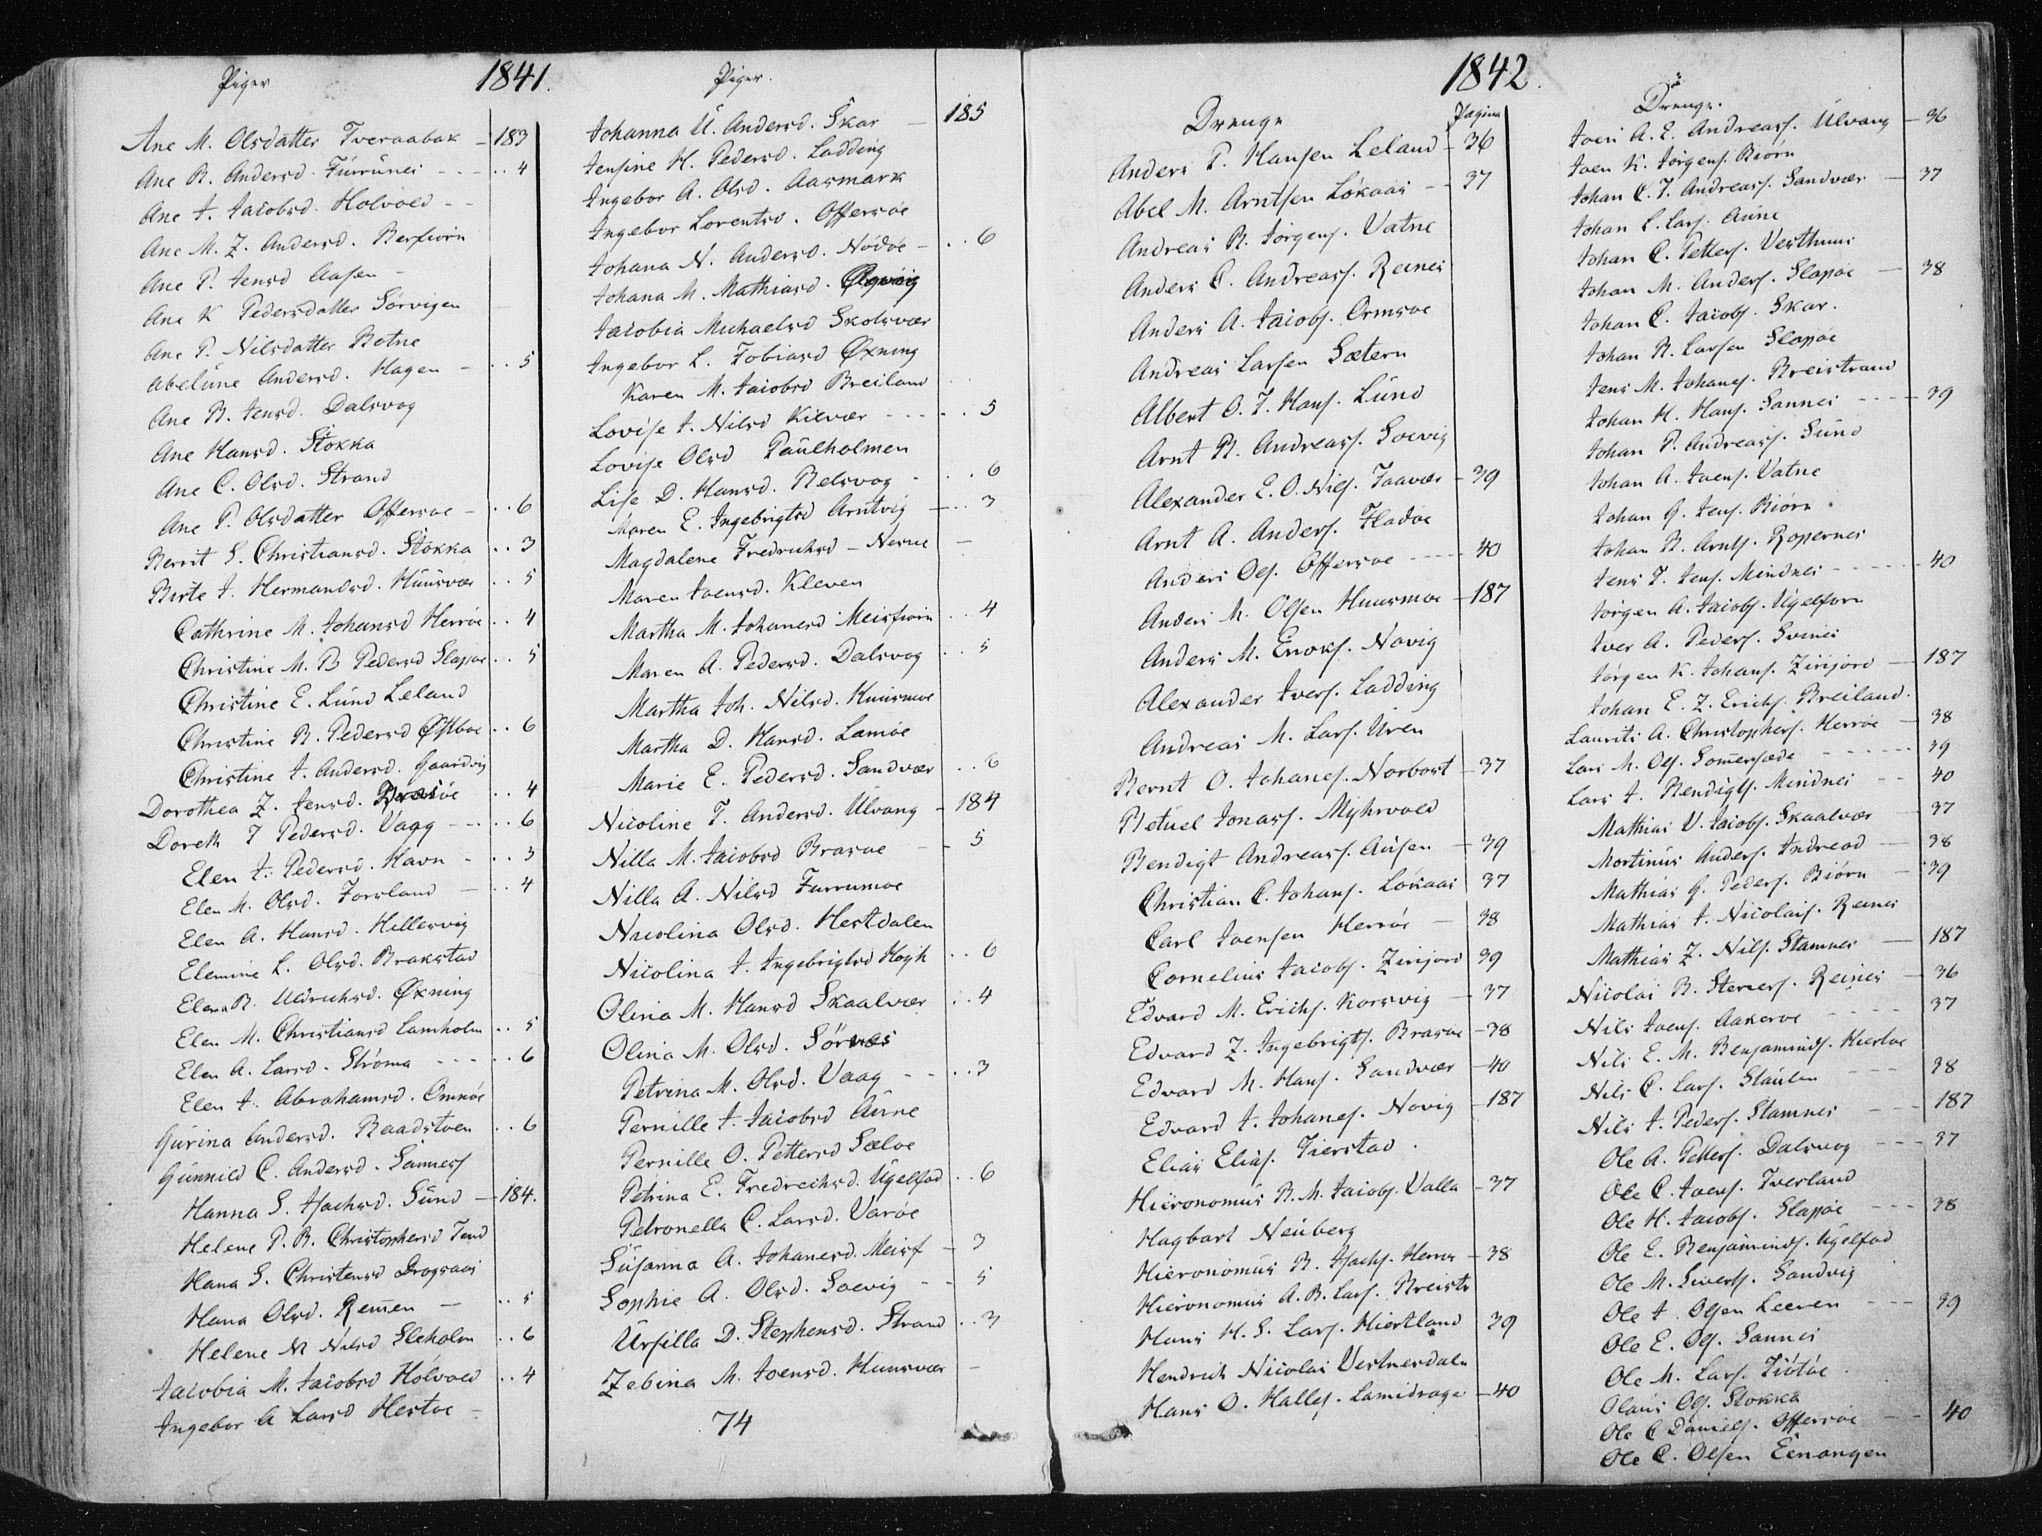 1841.
Piger
Ane M. Olsdatter Tveraabak - 183
Ane B. Andersd. Furrunes - - . . 4
Ane J. Jacobsd. Holvoed - -
Ane M. Z. Andersd. Berfiorn
Ane P. Jensd Aasen -
Ane K Pedersdatter Sörvigen
Ane P. Nilsdatter Botne
Abelüne Andersd. Hagen - . . 5
Ane B. Jensd. Dalsvog
Ane Hansd. Stokka
Ane C. Olsd. Strand
Ane P. Olsdatter Offersøe - . . 6
Berrit S. Christiansd. Stokka . . 3
Birte J. Hermandsd. Huusvær . . 5
Cathrine M. Johansd Herrøe . . 4
Christine M. B Pedersd Slapøe . . 5
Christine E. Lünd Leland
Christine B. Pedersd Østboe . . 6
Christine J. Andersd. Gaardvig
Dorothea Z. Jensd. Brasøe . . 4
Doreth J Pedersd. Vagg - - . . 6
Elen J. Pedersd. Havn - . . 3
Elen M. Olsd. Forsland - . . 4
Elen A. Hansd. Hellesvig
Elemine L. Olsd. Brakstad
Elena B. Uldrichsd. Øxning
Elen M. Christiansd Lamholm . . 5
Elen A. Larsd. Ströma - - - . . 6
Elen J. Abrahamsd. Omnöe
Gürina Andersd. Raadstoen . . 6
Günnild C. Andersd. Sanness
Hanna S. Isachsd. Sünd - 184.
Helene P. B. Christophersd Tend
Hana S. Christensd Drogsaas
Hana Olsd. Remen - . . 5
Helene M Nilsd Sleholm . . 6
Jacobia M. Jacobsd Holvoed . . 4
Ingebor A Larsd Hestøe -
Piger.
Johanna U. Andersd. Skar - 185
Jensine H. Pedersd. Ladding
Ingebor A. Olsd. Aasmark
Ingebor Lorentsd. Offersøe
Johana N. Andersd. Nödöe - . . 6
Johana M. Mathiasd.
Jacobia Michaelsd Skolsvær
Ingebor L. Tobiasd Øxning
Karen M. Jacobsd Breiland
Lovise J. Nilsd Kilvær - - - . . 5
Lovise Olsd Paulholmen
Lise D. Hansd. Belsvog - . . 6
Maren E. Ingebrigtsd Arntvig - . . 3
Magdalene Fredrichsd - Nesne -
Maren Joensd. Kleven
Martha M. Johanesd Meisfiorn . . 4
Maren A. Pedersd. Dalsvog . . 5
Martha Joh. Nilsd. Huusmoe
Martha D. Hansd. Lamøe
Marie E. Pedersd. Sandvær . . 6
Nicoline T. Andersd. Ulvang - 184
Nilla M. Jacobsd Brasøe - - 5
Nilla A. Nilsd Furrumoe
Nicolina Olsd. Hestdalen
Nicolina J. Ingebrigtsd Hogh . . 6
Olina M. Hansd Skaalvær . . 4
Olina M. Olsd. Sörnæs
Petrina M. Olsd. Vaag - - . . 3
Pernille J. Jacobsd Aune
Pernille O. Pettersd Sæløe
Petrina E. Fredreichsd. Ugelfsd . . 6
Petronella C. Larsd. Varøe
Susanna A. Johanesd. Meisf - 3
Sophie A. Olsd. Soevig - - 5
Ursilla D. Stephensd. Strand . . 3
Zebina M. Joensd. Huusvær -
74
1842.
Drenge Pagina
Anders P. Hansen Leland - 36
Abel M. Arntsen Lökaas - - 37
Andreas B. Jörgens. Vatne
Anders C. Andreass. Reines
Anders A. Jacobs. Ormsøe
Andreas Larsen Sætern
Albert O. J. Hans. Lünd
Arnt B. Andreass. Soevig
Alexander E. O. Nils. Taavær - 39
Arnt A. Anders. Fladøe
Anders Ols. Offersøe - - - - 40
Anders M. Olsen Huusmoe - 187
Anders M. Enoks. Novig
Alexander Ivers. Ladding
Andreas M. Lars. Uren
Bernt O. Johanes. Norbost - 37
Betuel Jonass. Myhrvold
Bendigt Andreass. Aüsen - 39
Christian C. Johans. Lokaas 37
Carl Joensen Herröe - 38
Cornelius Jacobs. Zirijord 39
Edvard M. Erichs. Korsvig - 37
Edvard Z. Ingebrigts. Brasøe - 38
Edvard M. Hans. Sandvær - 40
Edvard J. Johanes. Novig - 187
Elias Elias. Tierstad.
Hieronomüs B. M. Jacobs. Valla - 37
Hagbart Neüberg
Hieronomüs B. Isachs. Herrøe - 38
Hieronomüs A. B. Lars. Breistr
Hans H. S. Lars. Hiertland 39
Hendrich Nicolai Vestnesdaln
Hans O. Halles. Lamidrage - 40
Drenge.
Joen A. E. Andreass. Ulvang - 36
Joen K. Jörgens. Biörn
Johan C. J. Andreass. Sandvær - 37
Johan L. Lars. Aune
Johan C. Petters. Vesthuus
Johan M. Anders. Slapøe - 38
Johan C. Jacobs. Skar.
Johan B. Larsen Slapøe
Jens M. Johanes. Breistrand
Johan H. Hans. Sannes - - - 39
Johan P. Andreass. Sünd
Johan A. Joens. Vatne
Johan G. Jens. Biörn
Johan B. Arnts. Ropernes
Jens T. Jens. Mindnes - - - - - 40
Jörgen A. Jacobs. Ugelforn
Iver A. Peders. Svines
Jörgen K. Johans. Zirijord - 187
Johan E. Z. Erichs. Breiland.
Laurits A. Christophers. Herröe - 38
Lars M. Ols. Somersæde - - - - - 39
Lars J. Bendigts. Mindnes - - 40
Mathias U. Jacobs. Skaalvær - 37
Mortinüs Anders. Indreod - 38
Mathias G. Peders. Biörn - 39
Mathias J. Nicolais. Reines
Mathias Z. Nils. Stamnes - 187
Nicolai B. Steners. Reines - 36
Nils Joens. Aakerøe - - - - 37
Nils E. M. Benjaminds. Hiertøe
Nils C. Lars. Staülen - - - 38
Nils J. Peders. Stamnes - - - 187
Ole A. Petters. Dalsvog - - - 37
Ole C. Joens. Iverland
Ole H. Jacobs. Slapøe - - - 38
Ole E. Benjaminds. Ugelfsd
Ole M. Siverts. Sandvig
Ole J. Olsen Leeren - - - 39
Ole E. Ols. Sannes
Ole M. Lars. Tiötöe
Olaüs Ols. Stokka
Ole C Daniels. Offersøe - - - 40
Ole C. Olsen Einangen